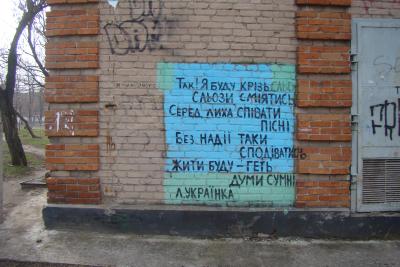 Так! Я буду крізь
сльози сміятись
Серед лиха співати
пісні
Без надії таки
сподіватись
Жити буду – геть
думи сумні
Л. Українка